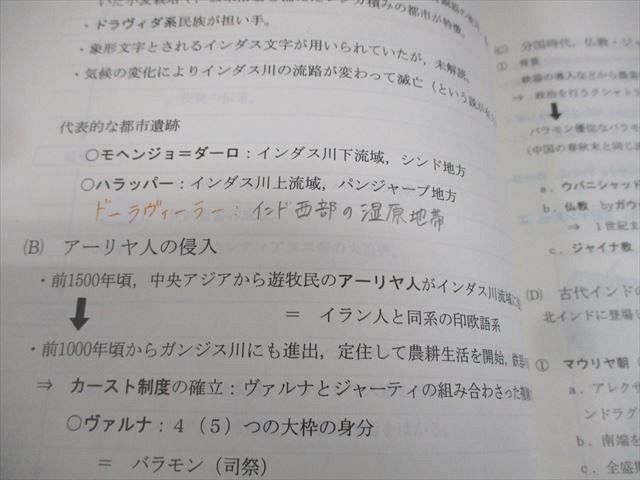 ・ドラヴィダ系民族が担い手。
・象形文字とされるインダス文字が用いられていたが，未解読。
・気候の変化によりインダス川の流路が変わって滅亡（という説が
代表的な都市遺跡
○モヘンジョ＝ダーロ：インダス川下流域，シンド地方
○ハラッパー：インダス川上流域，パンジャーブ地方
ドーラヴィーラー：インド西部の湿原地帯
(B) アーリヤ人の侵入
・前1500年頃，中央アジアから遊牧民のアーリヤ人がインダス川流域に
＝ イラン人と同系の印欧語系
・前1000年頃からガンジス川にも進出，定住して農耕生活を開始，鉄器
⇒ カースト制度の確立：ヴァルナとジャーティの組み合わさった
○ヴァルナ：4（5）つの大枠の身分
＝ バラモン（司祭）
(C) 分国時代，仏教・ジャ
① 背景
鉄器の導入などから農業
⇒ 政治を行うクシャトリ
バラモン優位なバラモ
(中国の春秋末と同じ
a．ウパニシャッド
b．仏教 byガウ
⇒ 1世紀ま
c．ジャイナ教
(D) 古代インドの
北インドに登場し
① マウリヤ朝（
a．アレクサ
ンドラグ
b．南端を
c．全盛期